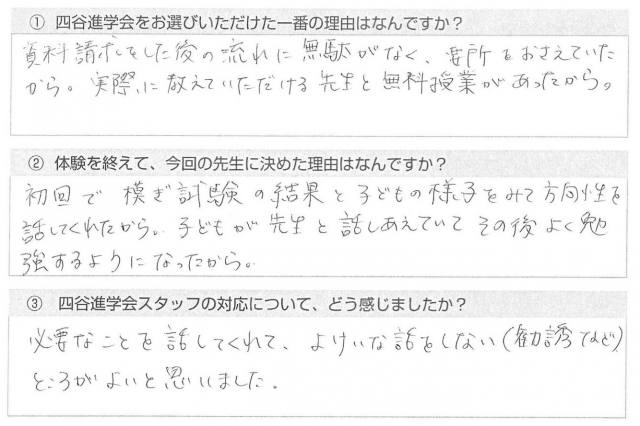 ① 四谷進学会をお選びいただけた一番の理由はなんですか？
資料請求をした後の流れに無駄がなく、要所をおさえていた
から。実際に教えていただける先生と無料授業があったから。
② 体験を終えて、今回の先生に決めた理由はなんですか？
初回で模ぎ試験の結果と子どもの様子をみて方向性を
話してくれたから。子どもが先生と話しあえていてその後よく勉
強するようになったから。
③ 四谷進学会スタッフの対応について、どう感じましたか？
必要なことを話してくれて、よけいな話をしない(勧誘など)
ところがよいと思いました。